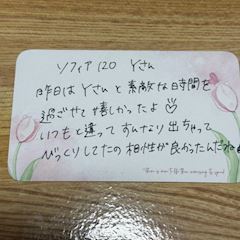 ソフィア120 Yさん
昨日は Yさん と 素敵な時間を
過ごせて 嬉しかったよ♡
いつもと違って すんなり 出ちゃって
びっくりしたの 相性が良かったんだね